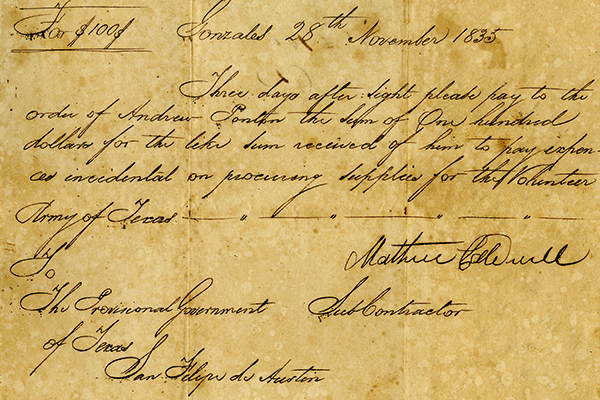 For $100$ Gonzales 28th November 1835
Three days after sight please pay to the
order of Andrew Ponton the sum of One hundred
dollars for the like sum received of him to pay expen-
ces incidental on procuring supplies for the Volunteer
Army of Texas — " — " — " — " — "
Mathew Caldwell
To
The Provisional Government Sub Contractor
of Texas
San Felipe de Austin